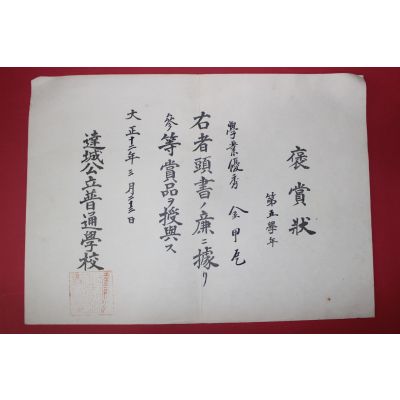 褒賞狀
第五學年
學業優秀 金甲
右者頭書ノ廉ニ據リ
參等賞品ヲ授與ス
大正十二年三月二十三日
達城公立普通學校